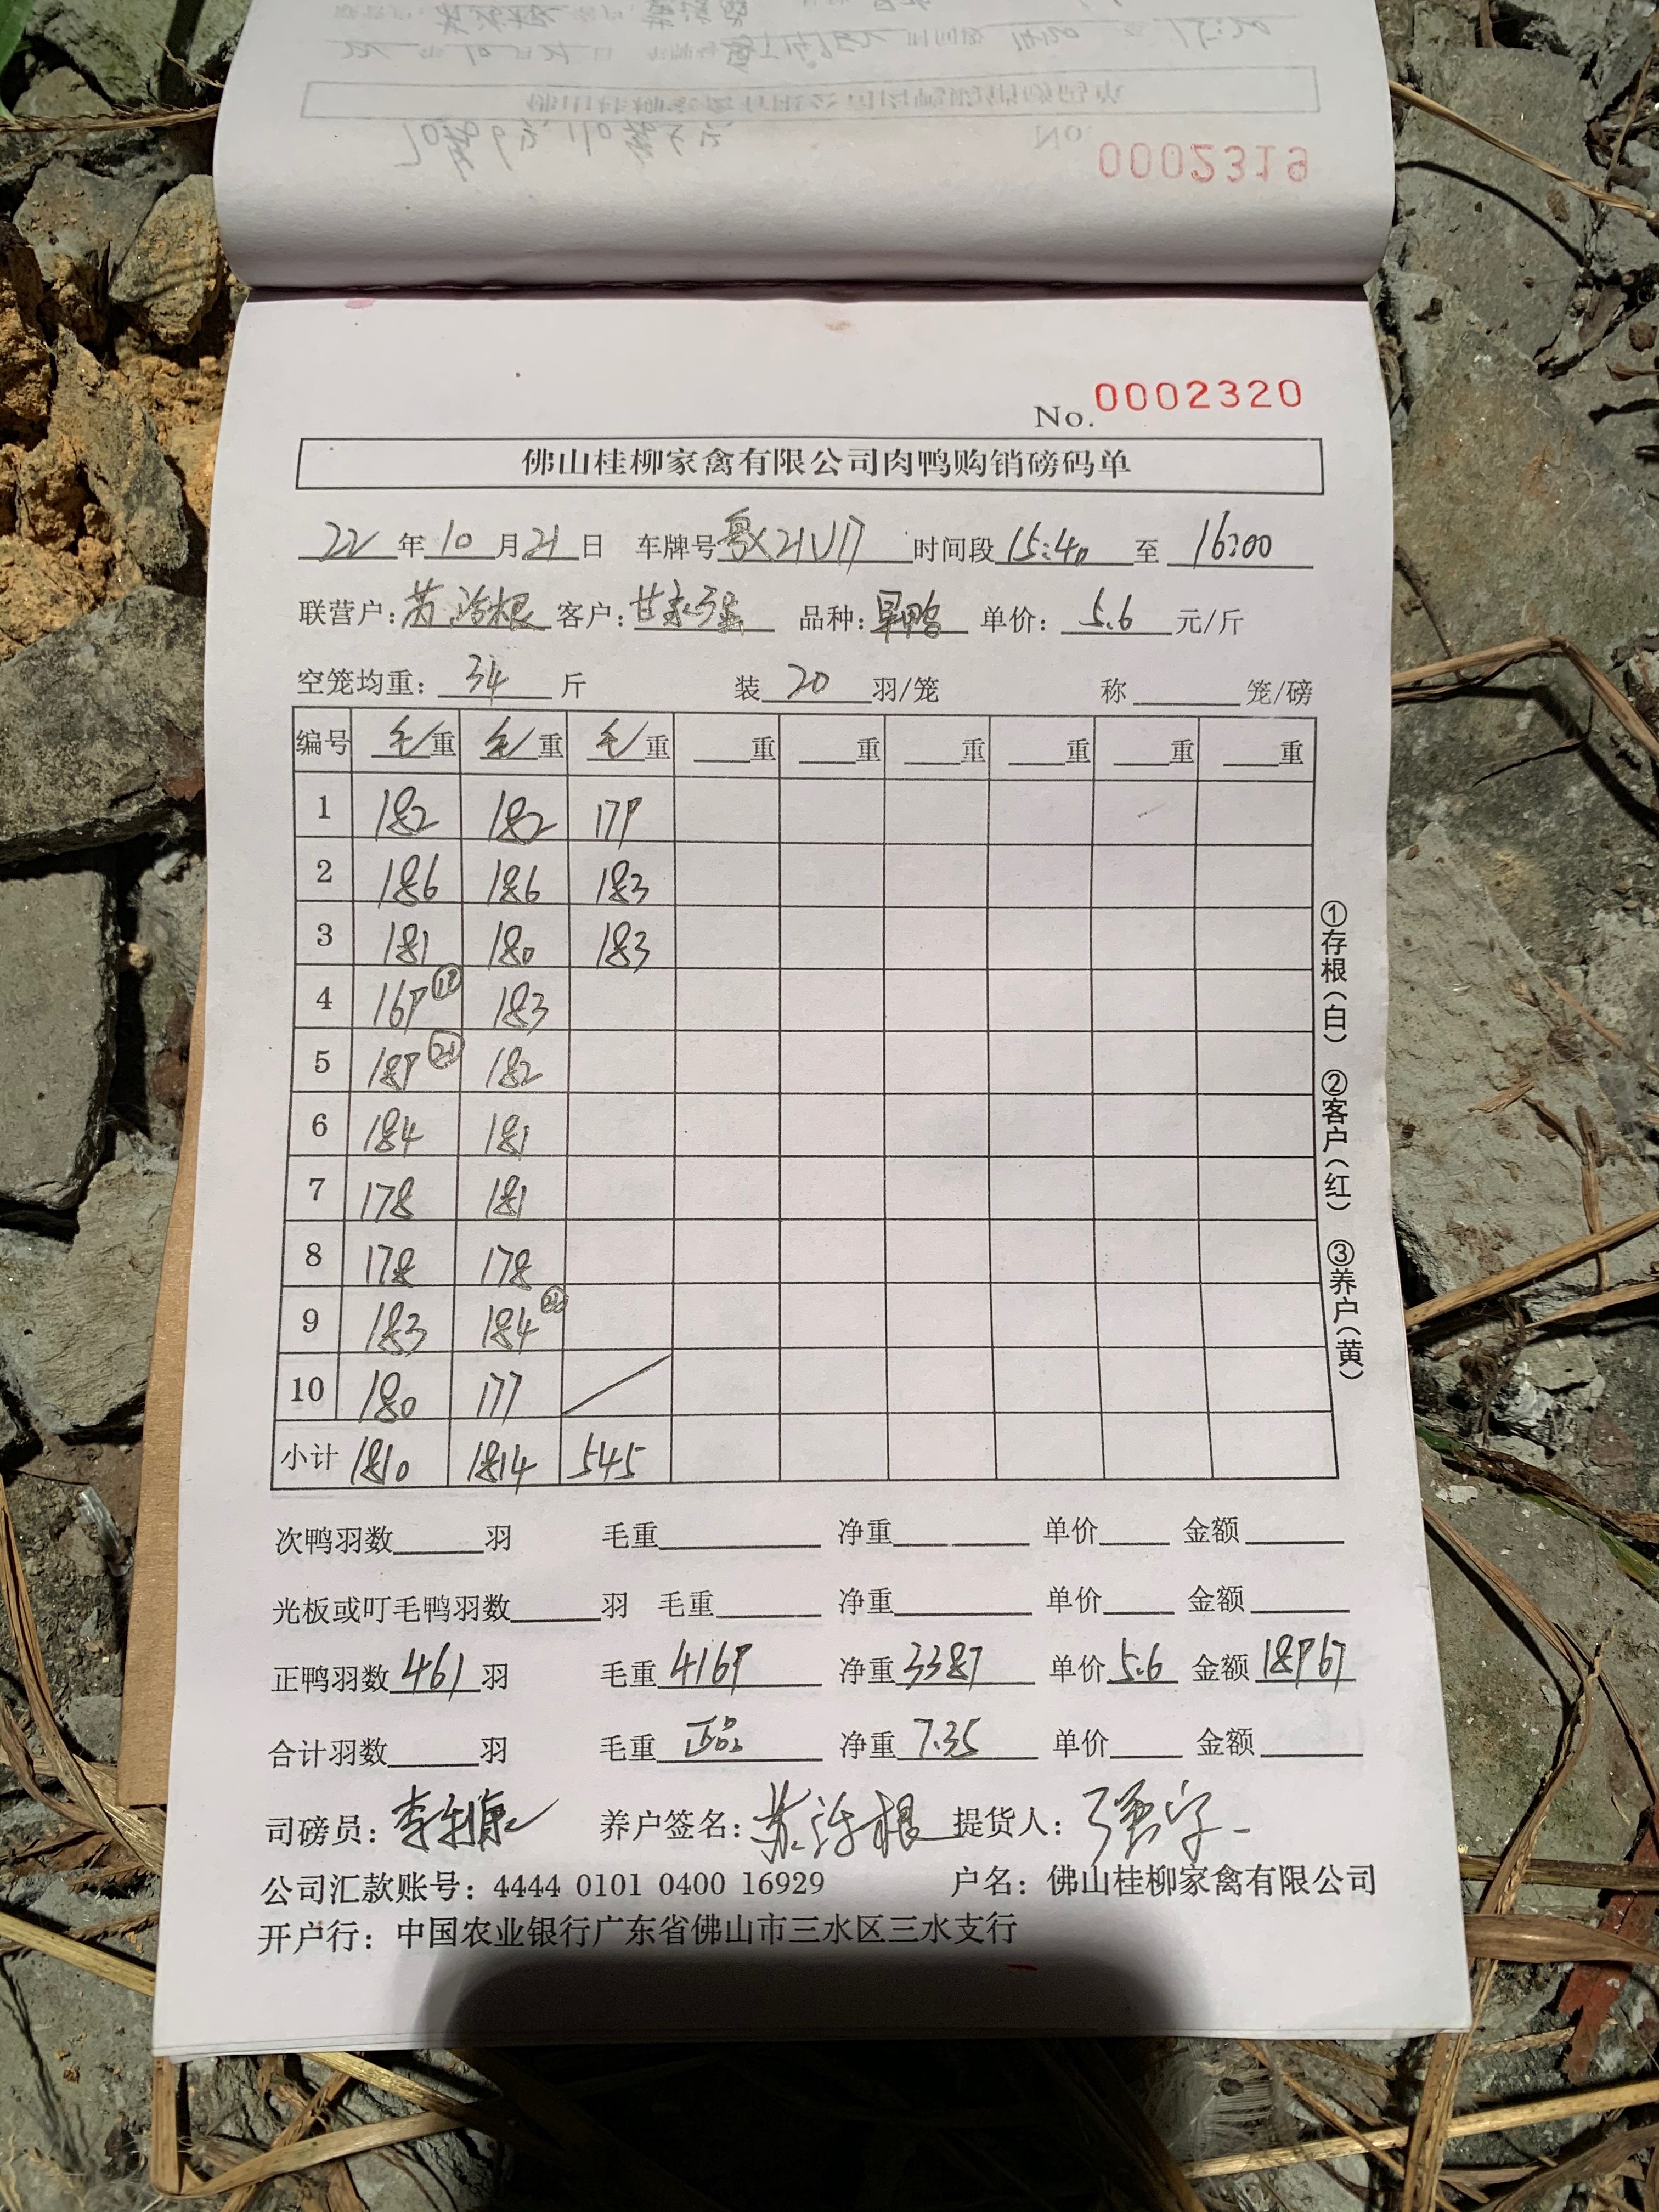 0002319
No. 0002320
佛山桂柳家禽有限公司肉鸭购销磅码单
22 年 10 月 21 日 车牌号 粤X21U17 时间段 15:40 至 16:00
联营户: 苏 根 客户: 甘 强 品种: 旱鸭 单价: 5.6 元/斤
空笼均重: 34 斤 装 20 羽/笼 称 笼/磅
编号 毛重 毛重 毛重 重 重 重 重 重 重
1 182 182 179
2 186 186 183
3 181 180 183
4 169 ⑲ 183
5 189 ㉑ 182
6 184 181
7 178 181
8 178 178
9 183 184 ㉑
10 180 177
小计 1810 1814 545
①存根(白) ②客户(红) ③养户(黄)
次鸭羽数 羽 毛重 净重 单价 金额
光板或叮毛鸭羽数 羽 毛重 净重 单价 金额
正鸭羽数 461 羽 毛重 4169 净重 3387 单价 5.6 金额 18967
合计羽数 羽 毛重 正品 净重 7.35 单价 金额
司磅员: 李 康 养户签名: 苏 根 提货人: 强
公司汇款账号: 4444 0101 0400 16929 户名: 佛山桂柳家禽有限公司
开户行: 中国农业银行广东省佛山市三水区三水支行